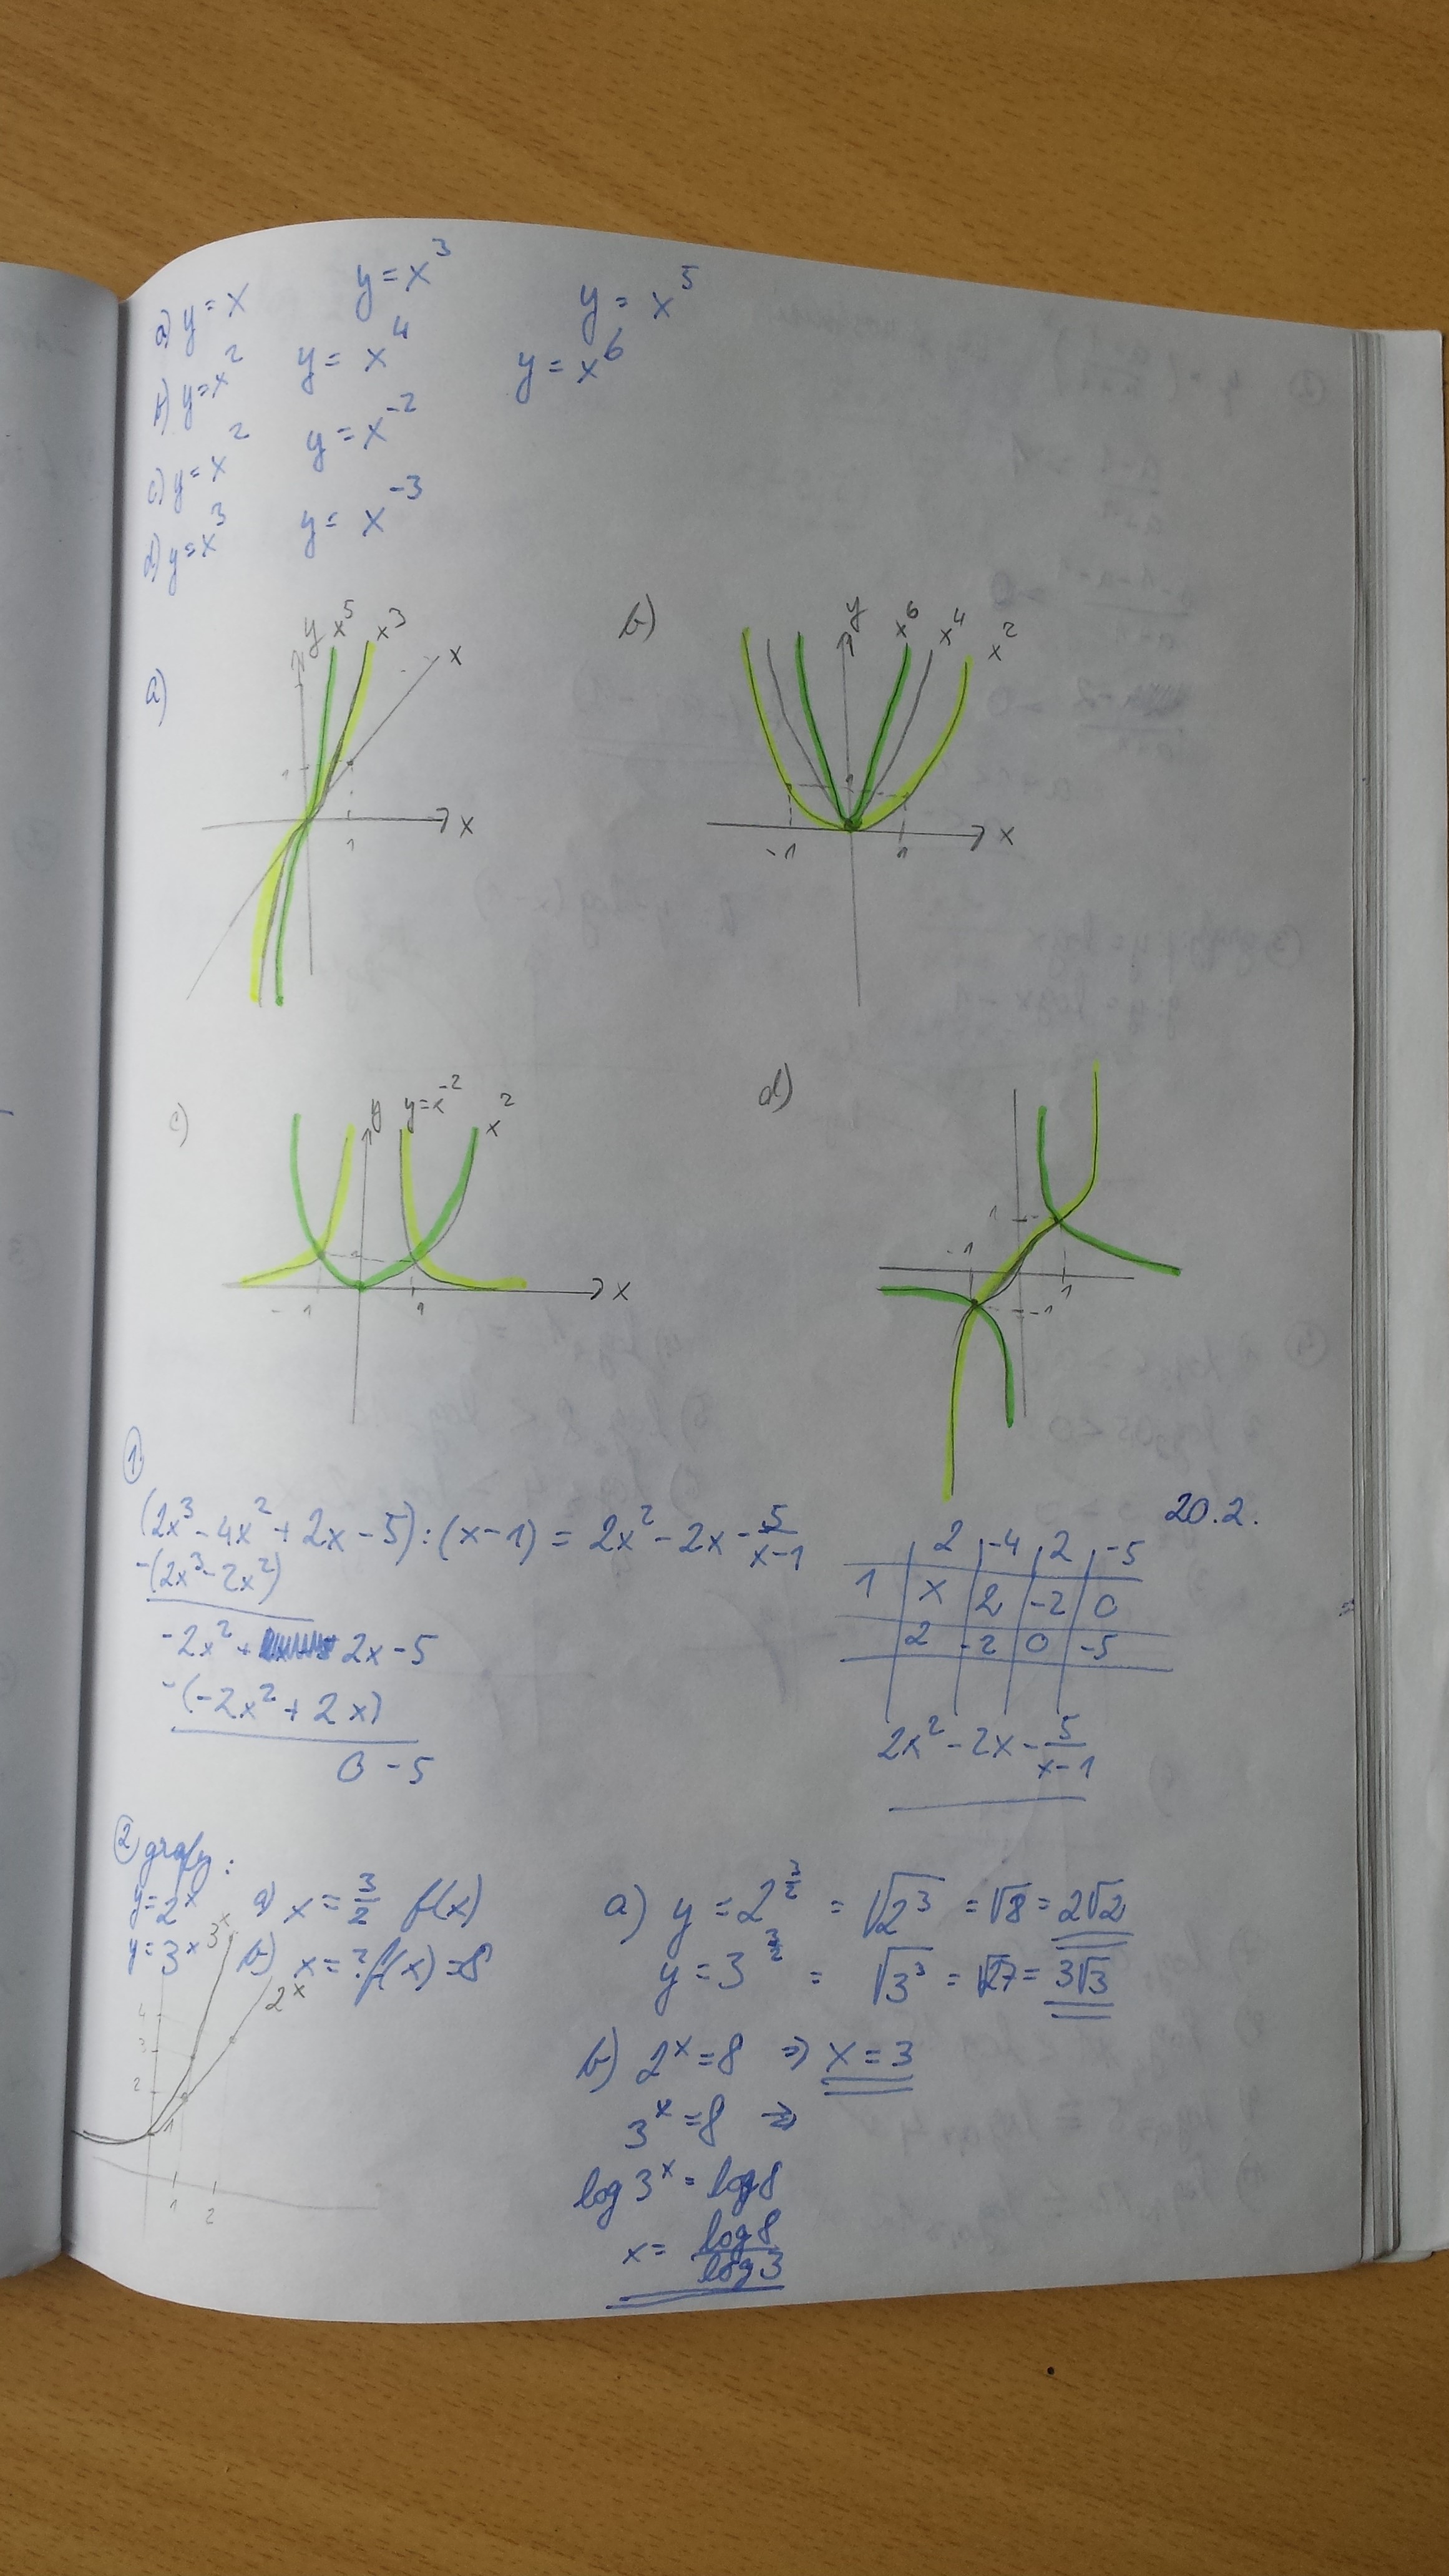 a) y = x y = x³ y = x⁵
b) y = x² y = x⁴ y = x⁶
c) y = x² y = x⁻²
d) y = x³ y = x⁻³
a)
y x⁵ x³ x
1
x
1
b)
y x⁶ x⁴ x²
1
-1 1 x
c)
y y = x⁻² x²
-1 1 x
d)
1
-1 1
-1
①
20.2.
(2x³ - 4x² + 2x - 5) : (x - 1) = 2x² - 2x - 5/(x-1)
-(2x³ - 2x²)
-2x² + 2x - 5
-(-2x² + 2x)
0 - 5
2 -4 2 -5
1 x 2 -2 0
2 -2 0 -5
2x² - 2x - 5/(x-1)
② grafy:
y = 2ˣ a) x = 3/2 f(x)
y = 3ˣ b) x = ? f(x) = 8
3ˣ
2ˣ
4
3
2
1
1 2
a) y = 2^(3/2) = √2³ = √8 = 2√2
y = 3^(3/2) = √3³ = √27 = 3√3
b) 2ˣ = 8 ⇒ x = 3
3ˣ = 8 ⇒
log 3ˣ = log 8
x = log 8 / log 3